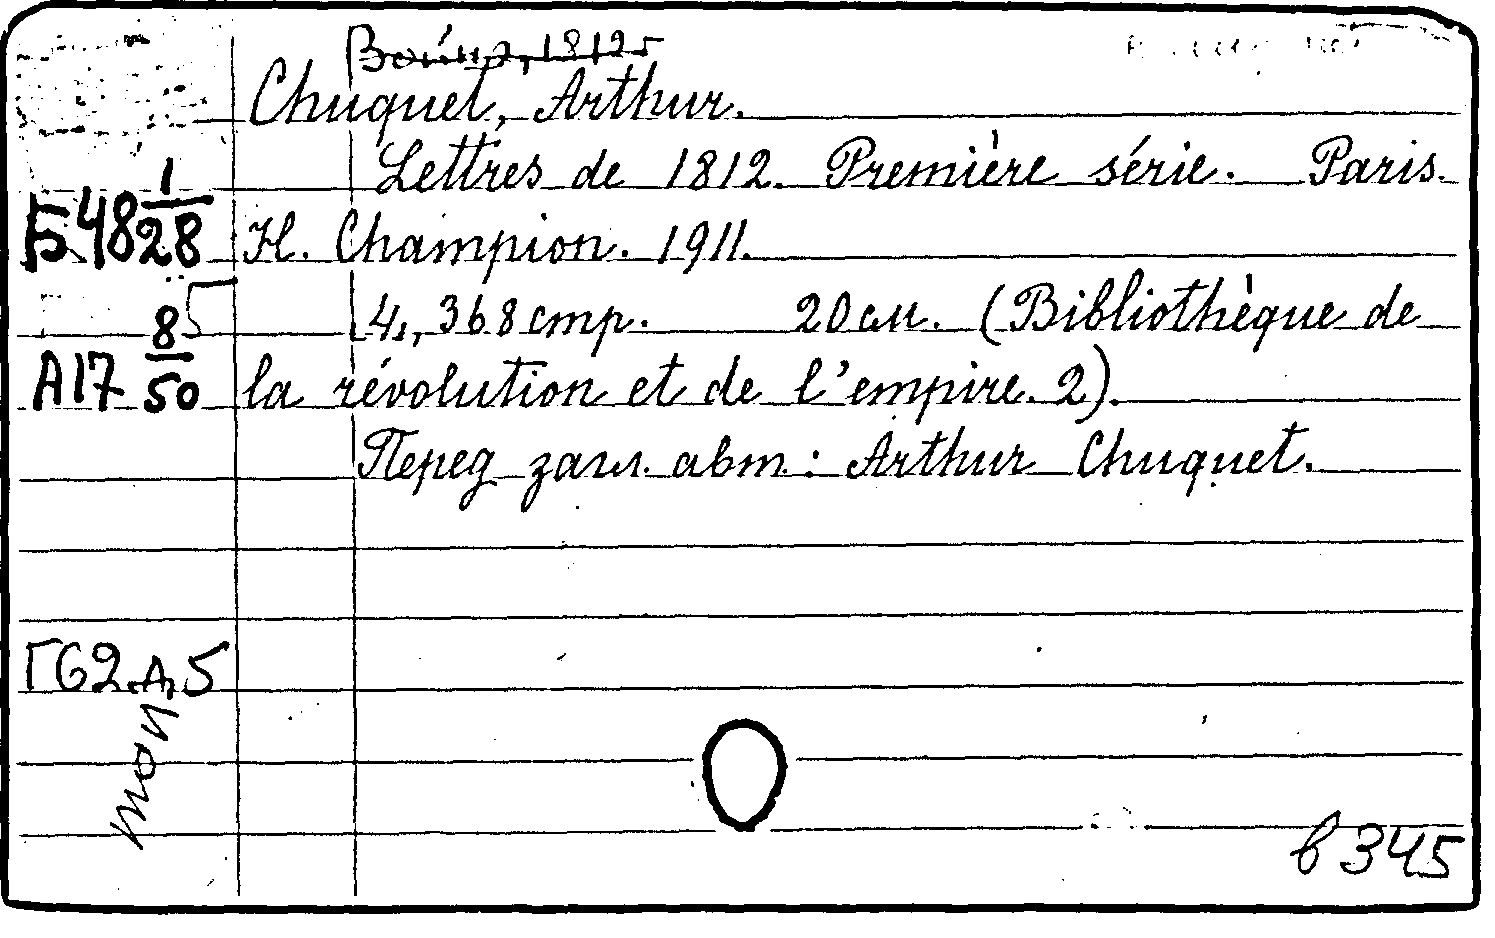 Война, 1812 г
Chuquet, Arthur.
Lettres de 1812. Première série. Paris.
Б 48 1/28
H. Champion. 1911.
4, 368 стр. 20 см. (Bibliothèque de
А17 8/50
la révolution et de l'empire. 2).
Перед загл. авт.: Arthur Chuquet.
Г62.А.5
в 345